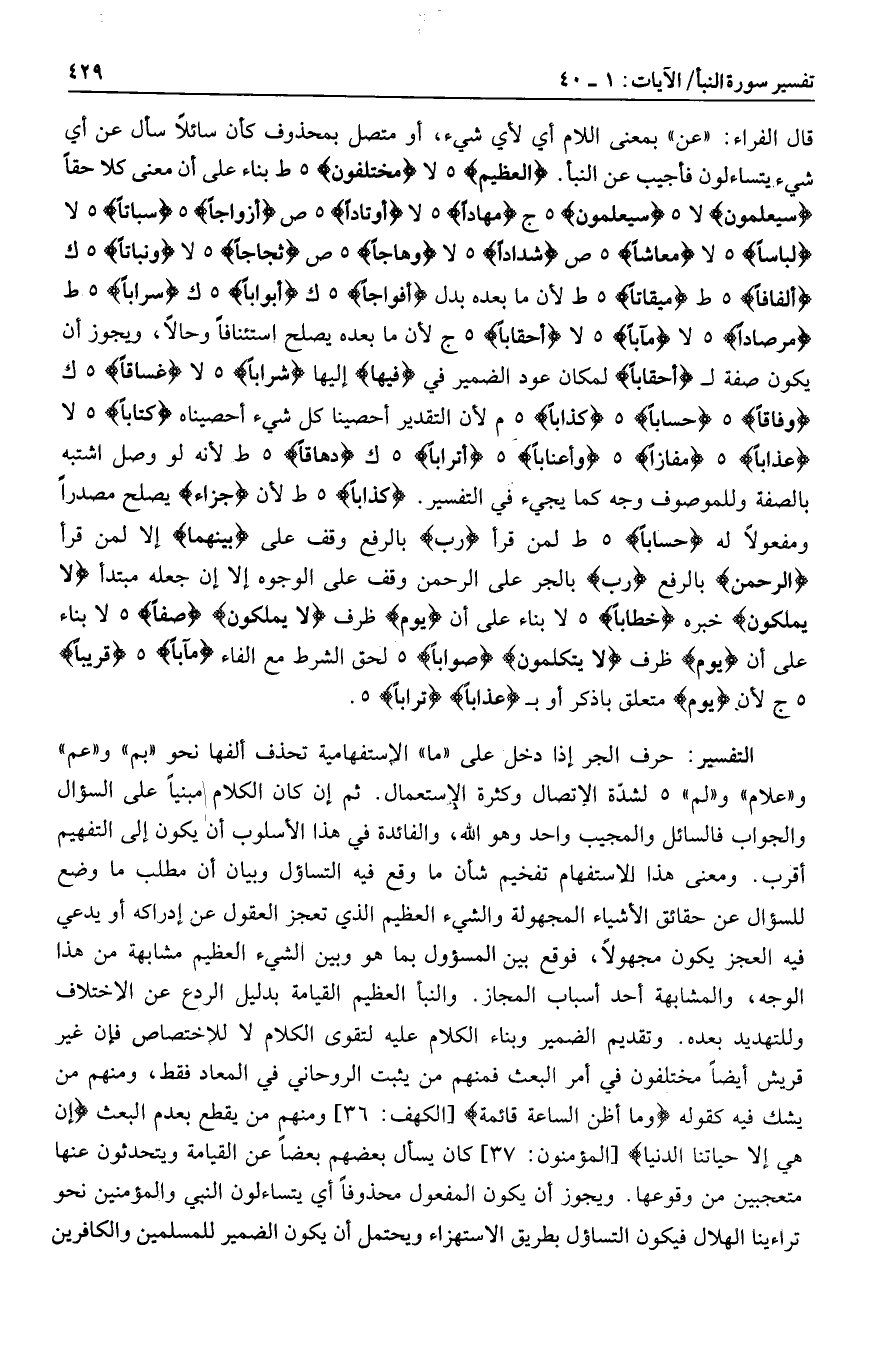 تفسير سورة النبأ/ الآيات: ١ ـ ٤٠
٤٢٩
قال الفراء: «عن» بمعنى اللام أي لأي شيء، أو متصل بمحذوف كأن سائلاً سأل عن أي
شيء يتساءلون فأجيب عن النبأ. ﴿العظيم﴾ ٥ لا ﴿مختلفون﴾ ٥ ط بناء على أن معنى كلا حقاً
﴿سيعلمون﴾ لا ٥ ﴿سيعلمون﴾ ٥ ج ﴿مهاداً﴾ ٥ لا ﴿أوتاداً﴾ ٥ ص ﴿أزواجاً﴾ ٥ ﴿سباتاً﴾ ٥ لا
﴿لباساً﴾ ٥ لا ﴿معاشاً﴾ ٥ ص ﴿شداداً﴾ ٥ لا ﴿وهاجاً﴾ ٥ ص ﴿ثجاجاً﴾ ٥ لا ﴿ونباتاً﴾ ٥ ك
﴿ألفافاً﴾ ٥ ط ﴿ميقاتاً﴾ ٥ ط لأن ما بعده بدل ﴿أفواجاً﴾ ٥ ك ﴿أبواباً﴾ ٥ ك ﴿سراباً﴾ ٥ ط
﴿مرصاداً﴾ ٥ لا ﴿مآباً﴾ ٥ لا ﴿أحقاباً﴾ ٥ ج لأن ما بعده يصلح إستئنافاً وحالاً، ويجوز أن
يكون صفة لـ ﴿أحقاباً﴾ لمكان عود الضمير في ﴿فيها﴾ إليها ﴿شراباً﴾ ٥ لا ﴿غساقاً﴾ ٥ ك
﴿وفاقاً﴾ ٥ ﴿حساباً﴾ ٥ ﴿كذاباً﴾ ٥ م لأن التقدير أحصينا كل شيء أحصيناه ﴿كتاباً﴾ ٥ لا
﴿عذاباً﴾ ٥ ﴿مفازاً﴾ ٥ ﴿وأعناباً﴾ ٥ ﴿أتراباً﴾ ٥ ك ﴿دهاقاً﴾ ٥ ط لأنه لو وصل اشتبه
بالصفة وللموصوف وجه كما يجيء في التفسير. ﴿كذاباً﴾ ٥ ط لأن ﴿جزاء﴾ يصلح مصدراً
ومفعولاً له ﴿حساباً﴾ ٥ ط لمن قرأ ﴿رب﴾ بالرفع وقف على ﴿بينهما﴾ إلا لمن قرأ
﴿الرحمن﴾ بالرفع ﴿رب﴾ بالجر على الرحمن وقف على الوجوه إلا إن جعله مبتدأ ﴿لا
يملكون﴾ خبره ﴿خطاباً﴾ ٥ لا بناء على أن ﴿يوم﴾ ظرف ﴿لا يملكون﴾ ﴿صفاً﴾ ٥ لا بناء
على أن ﴿يوم﴾ ظرف ﴿لا يتكلمون﴾ ﴿صواباً﴾ ٥ لحق الشرط مع الفاء ﴿مآباً﴾ ٥ ﴿قريباً﴾
٥ ج لأن ﴿يوم﴾ متعلق باذكر أو بـ ﴿عذاباً﴾ ﴿تراباً﴾ ٥.
التفسير: حرف الجر إذا دخل على «ما» الإستفهامية تحذف ألفها نحو «بم» و«عم»
و«علام» و«لم» ٥ لشدّة الإتصال وكثرة الإستعمال. ثم إن كان الكلام مبنياً على السؤال
والجواب فالسائل والمجيب واحد وهو الله، والفائدة في هذا الأسلوب أن يكون إلى التفهيم
أقرب. ومعنى هذا الاستفهام تفخيم شأن ما وقع فيه التساؤل وبيان أن مطلب ما وضع
للسؤال عن حقائق الأشياء المجهولة والشيء العظيم الذي تعجز العقول عن إدراكه أو يدعي
فيه العجز يكون مجهولاً، فوقع بين المسؤول بما هو وبين الشيء العظيم مشابهة من هذا
الوجه، والمشابهة أحد أسباب المجاز. والنبأ العظيم القيامة بدليل الردع عن الاختلاف
وللتهديد بعده. وتقديم الضمير وبناء الكلام عليه لتقوى الكلام لا للاختصاص فإن غير
قريش أيضاً مختلفون في أمر البعث فمنهم من يثبت الروحاني في المعاد فقط، ومنهم من
يشك فيه كقوله ﴿وما أظن الساعة قائمة﴾ [الكهف: ٣٦] ومنهم من يقطع بعدم البعث ﴿إن
هي إلا حياتنا الدنيا﴾ [المؤمنون: ٣٧] كان يسأل بعضهم بعضاً عن القيامة ويتحدثون عنها
متعجبين من وقوعها. ويجوز أن يكون المفعول محذوفاً أي يتساءلون النبي والمؤمنين نحو
تراءينا الهلال فيكون التساؤل بطريق الاستهزاء ويحتمل أن يكون الضمير للمسلمين والكافرين